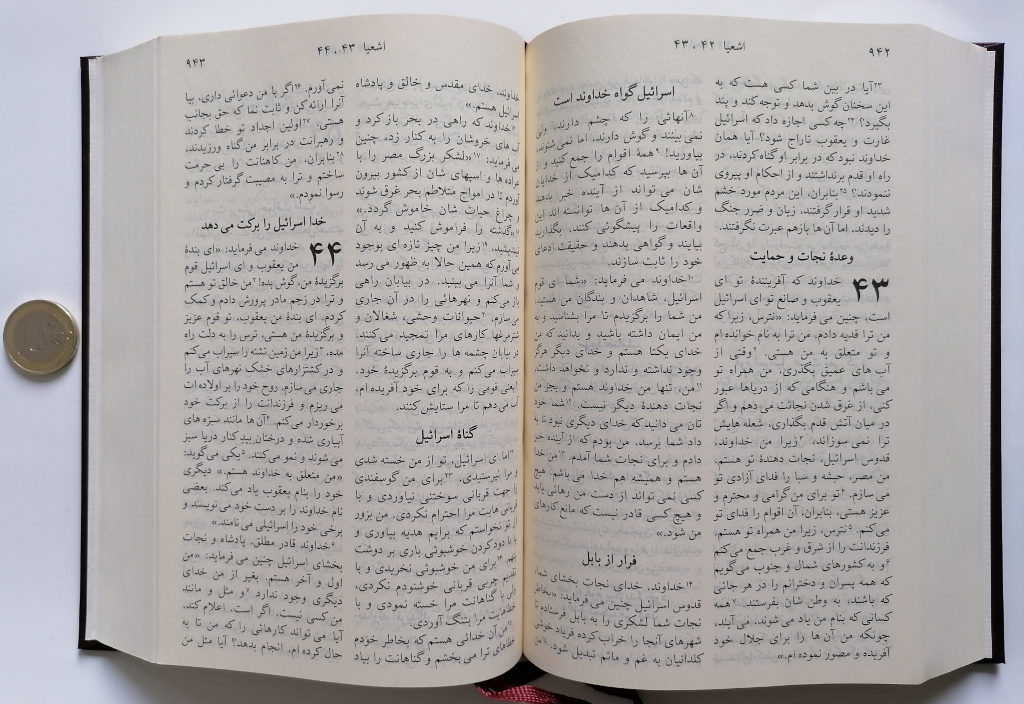 ۹۴۲
اشعیا ۴۲ ، ۴۳
۲۳آیا در بین شما کسی هست که به
این سخنان گوش بدهد و توجه کند و پند
بگیرد؟ ۲۴چه کسی اجازه داد که اسرائیل
غارت و یعقوب تاراج شود؟ آیا همان
خداوند نبود که در برابر او گناه کردند، در
راه او قدم برنداشتند و از احکام او پیروی
ننمودند؟ ۲۵بنابران، این مردم مورد خشم
شدید او قرار گرفتند، زیان و ضرر جنگ
را دیدند، اما آن ها بازهم عبرت نگرفتند.
وعدهٔ نجات و حمایت
۴۳ خداوند که آفرینندهٔ تو ای
یعقوب و صانع تو ای اسرائیل
است، چنین می فرماید: «نترس، زیرا که
من ترا فدیه دادم. من ترا به نام خوانده ام
و تو متعلق به من هستی. ۲وقتی از
آب های عمیق بگذری، من همراه تو
می باشم و هنگامی که از دریاها عبور
کنی، از غرق شدن نجاتت می دهم و اگر
در میان آتش قدم بگذاری، شعله هایش
ترا نمی سوزاند. ۳زیرا من خداوند،
قدوس اسرائیل، نجات دهندهٔ تو هستم،
من مصر، حبشه و سبا را فدای آزادی تو
می سازم. ۴تو برای من گرامی و محترم و
عزیز هستی، بنابران، آن اقوام را فدای تو
می کنم. ۵نترس، زیرا من همراه تو هستم،
فرزندانت را از شرق و غرب جمع می کنم
۶و به کشورهای شمال و جنوب می گویم
که همه پسران و دخترانم را در هر جائی
که باشند، به وطن شان بفرستند. ۷همه
کسانی که بنام من یاد می شوند، می آیند،
چونکه من آن ها را برای جلال خود
آفریده و مصور نموده ام.»
اسرائیل گواه خداوند است
۸آنهائی را که چشم دارند، ولی
نمی بینند و گوش دارند، اما نمی شنوند،
بیاورید! ۹همهٔ اقوام را جمع کنید و از
آن ها بپرسید که کدامیک از خدایان
شان می تواند از آینده خبر بدهد
و کدامیک از آن ها توانسته اند این
واقعات را پیشگوئی کنند. بگذارید
بیایند و گواهی بدهند و حقیقت ادعای
خود را ثابت سازند.
۱۰خداوند می فرماید: «شما ای قوم
اسرائیل، شاهدان و بندگان من هستید.
من شما را برگزیدم تا مرا بشناسید و به
من ایمان داشته باشید و بدانید که من
خدای یکتا هستم و خدای دیگر هرگز
وجود نداشته و ندارد و نخواهد داشت.
۱۱من، تنها من خداوند هستم و بجز من
نجات دهندهٔ دیگر نیست. ۱۲شما خود
تان می دانید که خدای دیگری نبود تا به
داد شما برسد، من بودم که از آینده خبر
دادم و برای نجات شما آمدم. ۱۳من خدا
هستم و همیشه هم خدا می باشم. هیچ
کسی نمی تواند از دست من رهائی یابد
و هیچ کسی قادر نیست که مانع کارهای
من شود.»
فرار از بابل
۱۴خداوند، خدای نجات بخشای شما،
قدوس اسرائیل چنین می فرماید: «بخاطر
نجات شما لشکری را به بابل فرستاده تا
شهرهای آنجا را خراب کرده فریاد خوشی
کلدانیان به غم و ماتم تبدیل شود. ۱۵من
۹۴۳
اشعیا ۴۳ ، ۴۴
خداوند، خدای مقدس و خالق و پادشاه
اسرائیل هستم.»
۱۶خداوند که راهی در بحر باز کرد و
آب های خروشان را به کنار زد، چنین
می فرماید: ۱۷«لشکر بزرگ مصر را با
عراده ها و اسپهای شان از کشور بیرون
آوردم تا در امواج متلاطم بحر غرق شوند
و چراغ حیات شان خاموش گردد.»
۱۸«گذشته را فراموش کنید و به آن
نیندیشید، ۱۹زیرا من چیز تازه ای بوجود
می آورم که همین حالا به ظهور می رسد
و شما آنرا می بینید. در بیابان راهی
باز می کنم و نهرهائی را در آن جاری
می سازم. ۲۰حیوانات وحشی، شغالان و
شترمرغها کارهای مرا تمجید می کنند.
در بیابان چشمه ها را جاری ساخته آنرا
سیراب می کنم و به قوم برگزیدهٔ خود،
۲۱یعنی قومی را که برای خود آفریده ام،
آب می دهم تا مرا ستایش کنند.
گناهٔ اسرائیل
۲۲اما ای اسرائیل، تو از من خسته شدی
و مرا نپرستیدی. ۲۳برای من گوسفندی
را جهت قربانی سوختنی نیاوردی و با
قربانی هایت مرا احترام نکردی. من بزور
از تو نخواستم که برایم هدیه بیاوری و
یا با دود کردن خوشبوئی باری بر دوشت
بنهم. ۲۴برای من خوشبوئی نخریدی و با
تقدیم چربی قربانی خوشنودم نکردی.
ولی با گناهانت مرا خسته نمودی و با
خطاهایت مرا بتنگ آوردی.
۲۵من آن خدائی هستم که بخاطر خودم
خطاهای ترا می بخشم و گناهانت را بیاد
نمی آورم. ۲۶اگر با من دعوائی داری، بیا
آنرا ارائه کن و ثابت نما که حق بجانب
هستی. ۲۷اولین اجداد تو خطا کردند
و رهبرانت در برابر من گناه ورزیدند،
۲۸بنابران، من کاهنانت را بی حرمت
ساختم و ترا به مصیبت گرفتار کردم و
رسوا نمودم.»
خدا اسرائیل را برکت می دهد
۴۴ خداوند می فرماید: «ای بندهٔ
من یعقوب و ای اسرائیل قوم
برگزیدهٔ من، گوش بده! ۲من خالق تو هستم
و ترا در رَحِم مادر پرورش دادم و کمک
کردم. ای بندهٔ من یعقوب، تو قوم عزیز
و برگزیدهٔ من هستی، ترس را به دلت راه
مده، ۳زیرا من زمین تشنه را سیراب می کنم
و در کشتزارهای خشک نهرهای آب را
جاری می سازم. روح خود را بر اولاده ات
می ریزم و فرزندانت را از برکت خود
برخوردار می کنم. ۴آن ها مانند سبزه های
آبیاری شده و درختان بید کنار دریا سبز
می شوند و نمو می کنند. ۵یکی می گوید:
«من متعلق به خداوند هستم.» دیگری
خود را بنام یعقوب یاد می کند. بعضی
نام خداوند را بر دست خود می نویسند و
برخی خود را اسرائیلی می نامند.»
۶خداوند قادر مطلق، پادشاه و نجات
بخشای اسرائیل چنین می فرماید: «من
اول و آخر هستم. بغیر از من خدای
دیگری وجود ندارد ۷و مثل و مانند
من کسی نیست. اگر است، اعلام کند.
آیا می تواند کارهائی را که من تا به
حال کرده ام، انجام بدهد؟ آیا مثل من